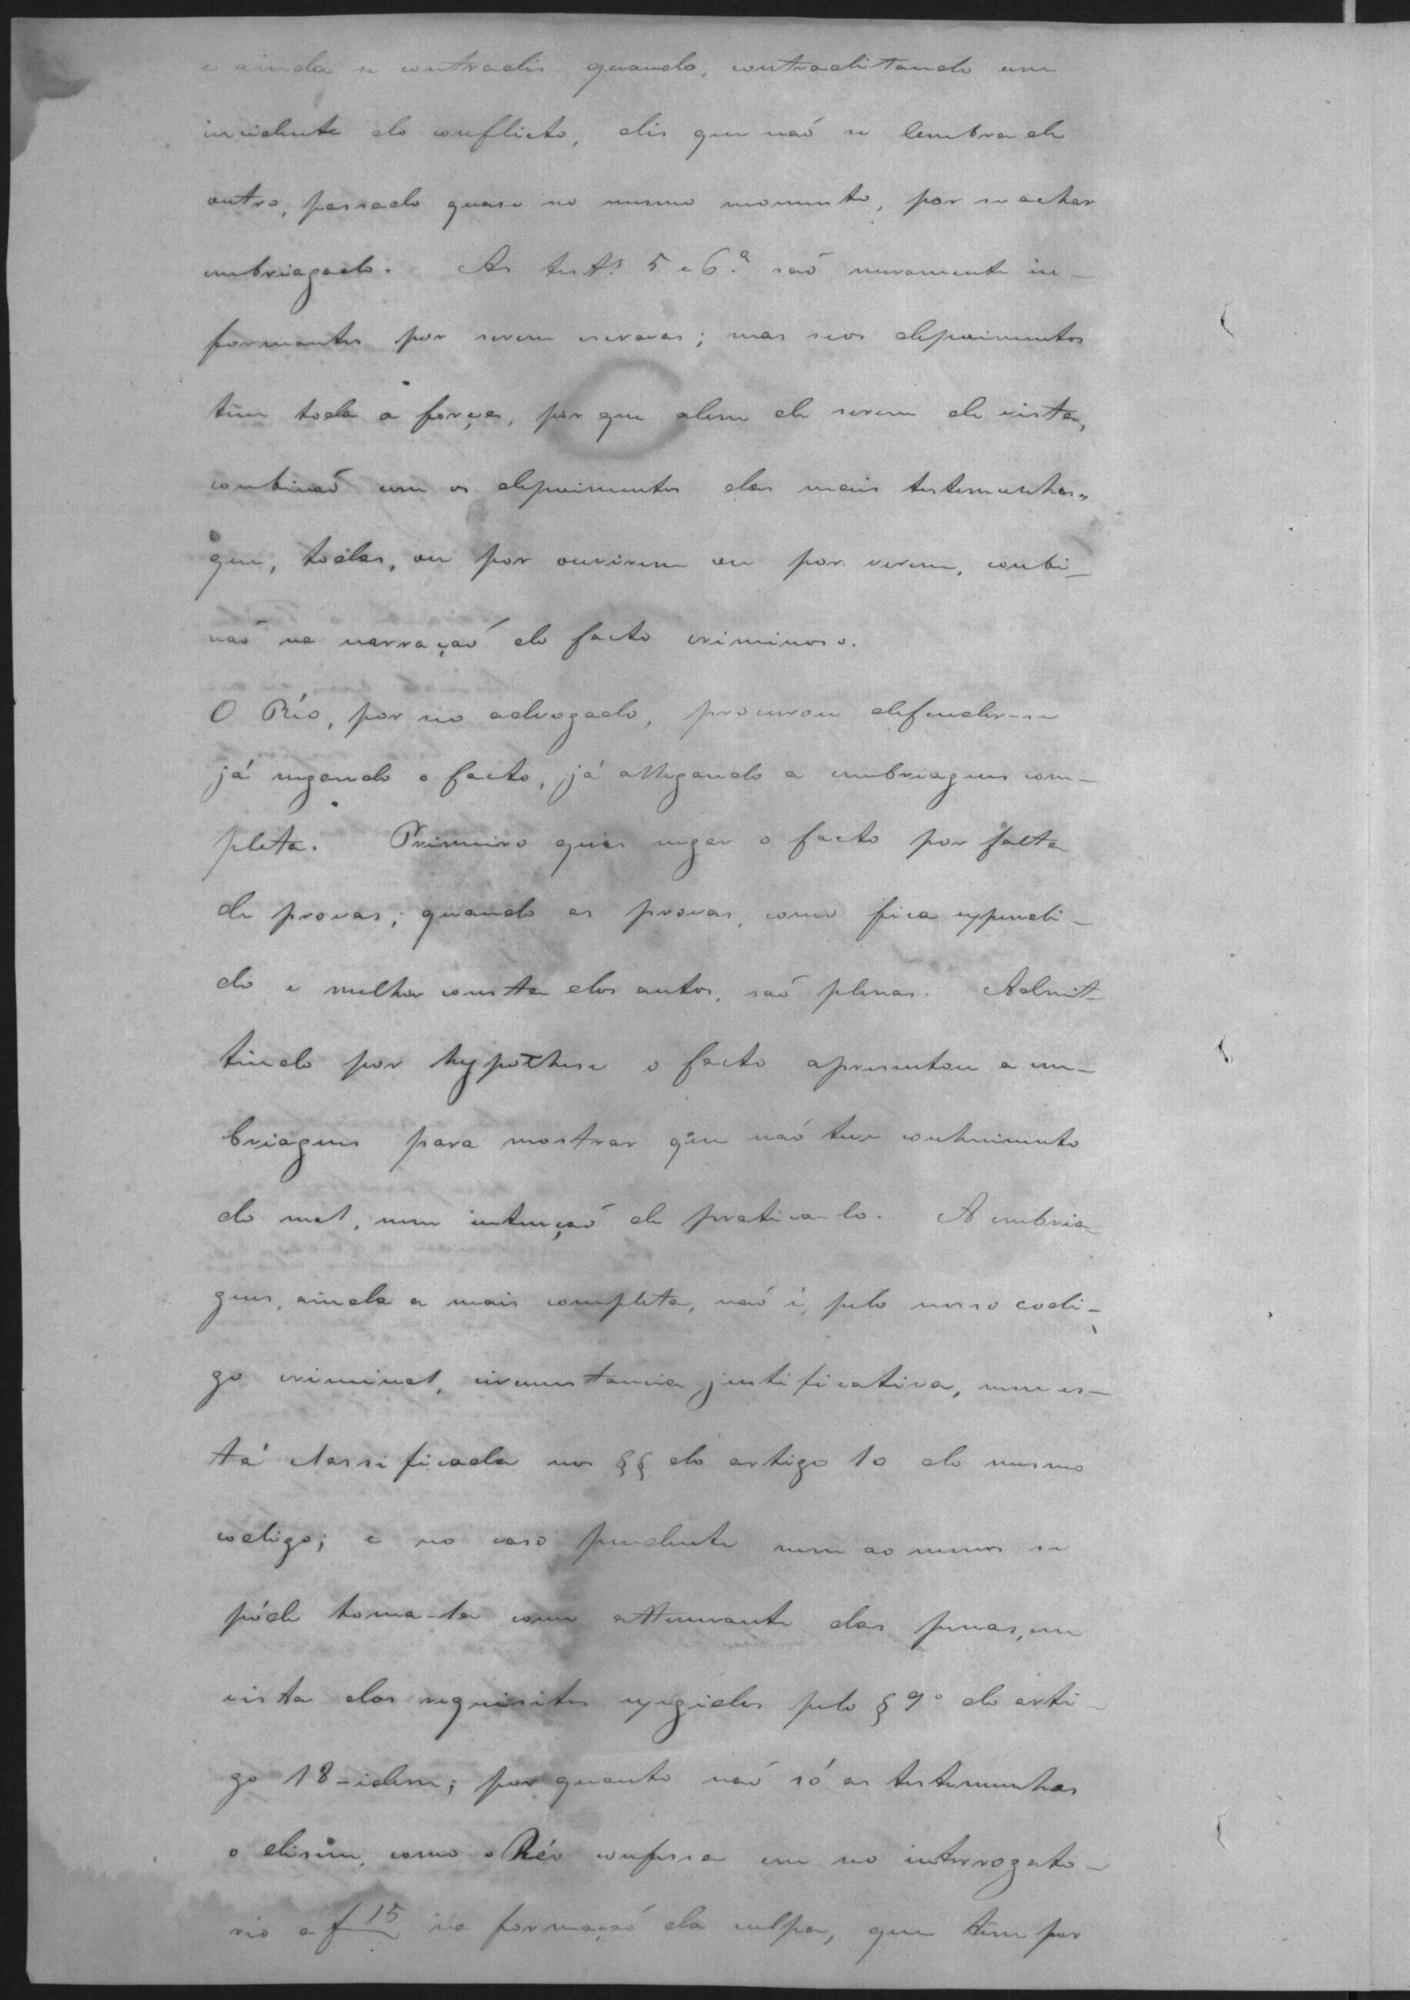 e ainda se contradis quando, contraditando um
incidente do conflicto, dis que naõ se lembra de
outro, passado quase no mesmo momento, por se achar
embriagado. As test.ª 5 e 6.ª saõ meramente in-
formantes por serem escravas; mas seos depoimentos
têm toda a força, por que alem de serem de vista,
combinaõ com os depoimentos das mais testemunhas,
que, todas, ou por ouvirem ou por verem, combi-
naõ na narraçaõ do facto criminoso.
O Réo, por seo advogado, procurou defender-se
já negando o facto, já allegando a embriaguez com-
pleta. Primeiro quis negar o facto por falta
de provas; quando as provas, como fica expendi-
do e melhor consta dos autos, saõ plenas. Admit-
tindo por hypothese o facto apresentou a em-
briaguez para mostrar que naõ teve conhecimento
do mal, nem intençaõ de pratica-lo. A embria-
guez, ainda a mais completa, naõ é, pelo nosso codi-
go criminal, circumstancia justificativa, nem es-
tá classificada nos §§ do artigo 10 do mesmo
codigo; e no caso pendente nem ao menos se
póde toma-la como attenuante das penas, em
vista dos requisitos exigidos pelo § 9º do arti-
go 18-idem; por quanto naõ só as testemunhas
o dizem, como o Réo confessa em seo interrogato-
rio a f 15 na formaçaõ da culpa, que têm por